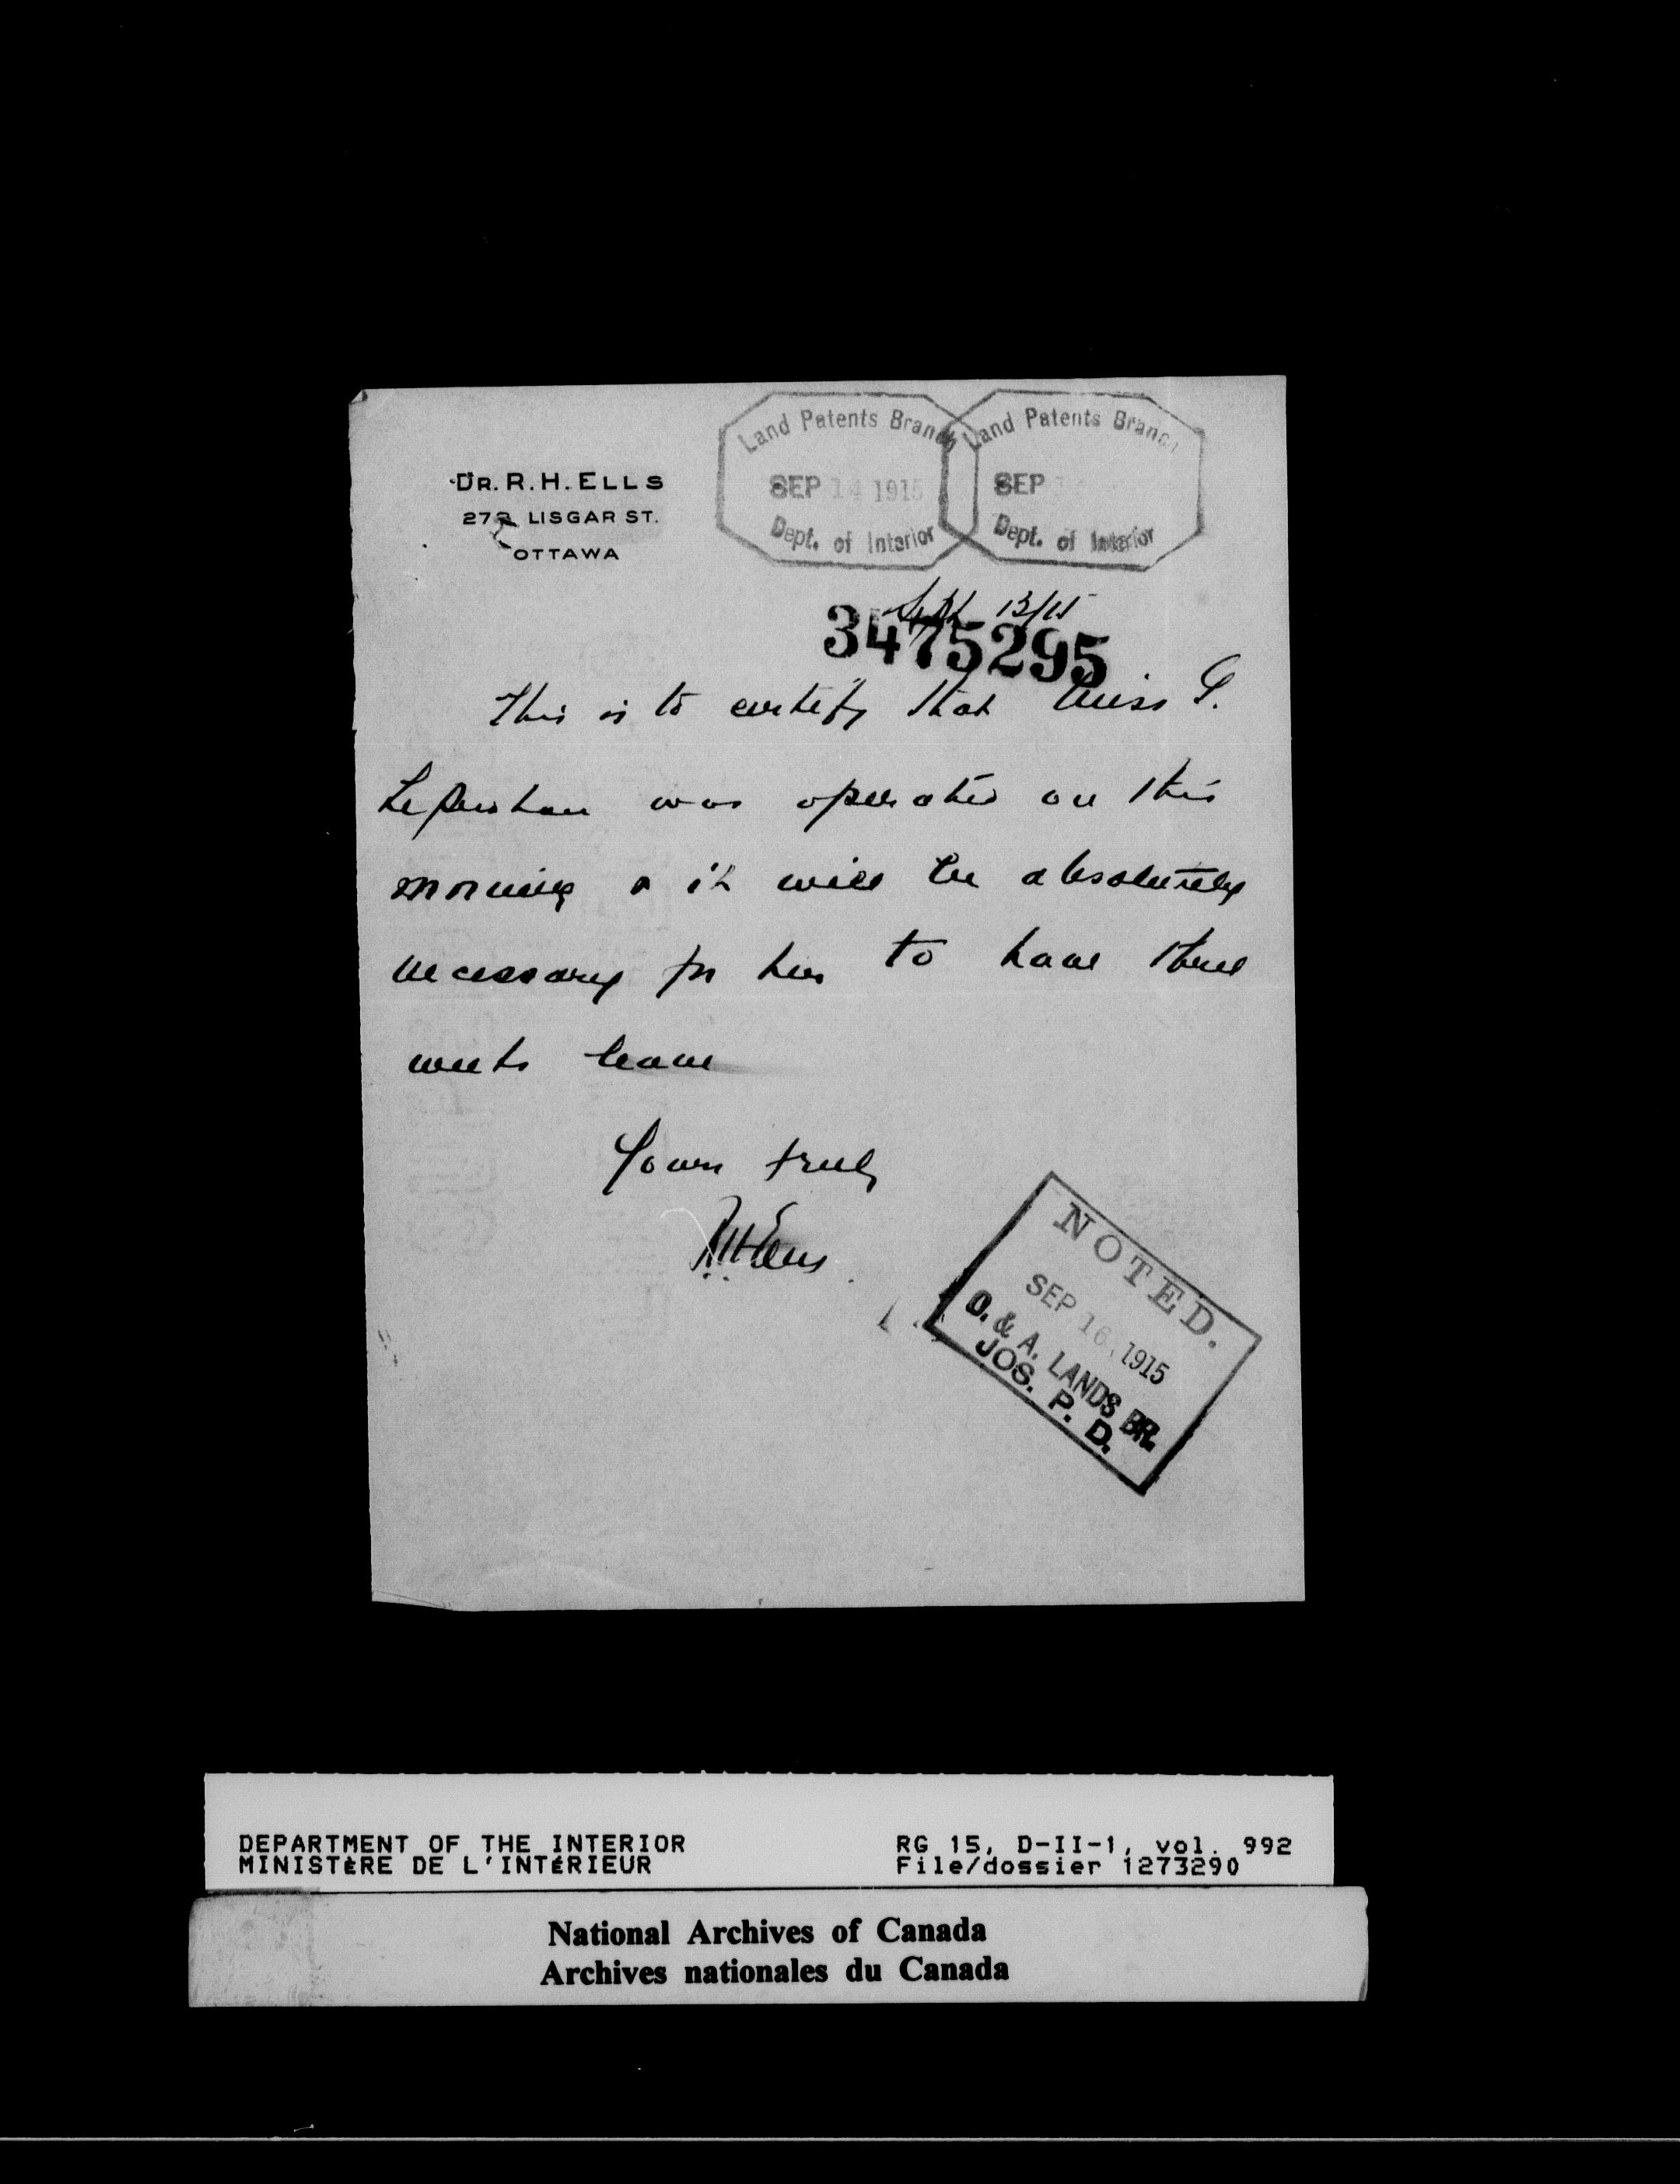 DR. R. H. ELLS
LISGAR ST.
OTTAWA
Land Patents Branch
SEP 14 1915
Dept. of Interior
Land Patents Branch
SEP
Dept. of Interior
Sept 13/15
3475295
This is to certify that Miss G.
was operated on this
morning & it will be absolutely
necessary for her to have three
weeks leave
Yours truly
RH Ells
NOTED.
SEP 16 1915
O. & A. LANDS BR.
JOS. P. D.
DEPARTMENT OF THE INTERIOR
MINISTÈRE DE L'INTÉRIEUR
RG 15, D-II-1, vol. 992
File/dossier 1273290
National Archives of Canada
Archives nationales du Canada